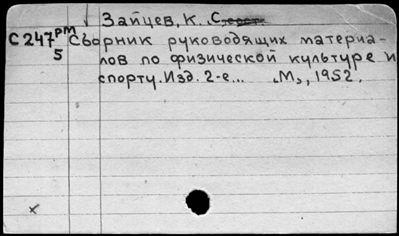 Зайцев, К. С.
С247 РМ Сборник руководящих материа-
5 лов по физической культуре и
спорту. Изд. 2-е... „М", 1952.
х